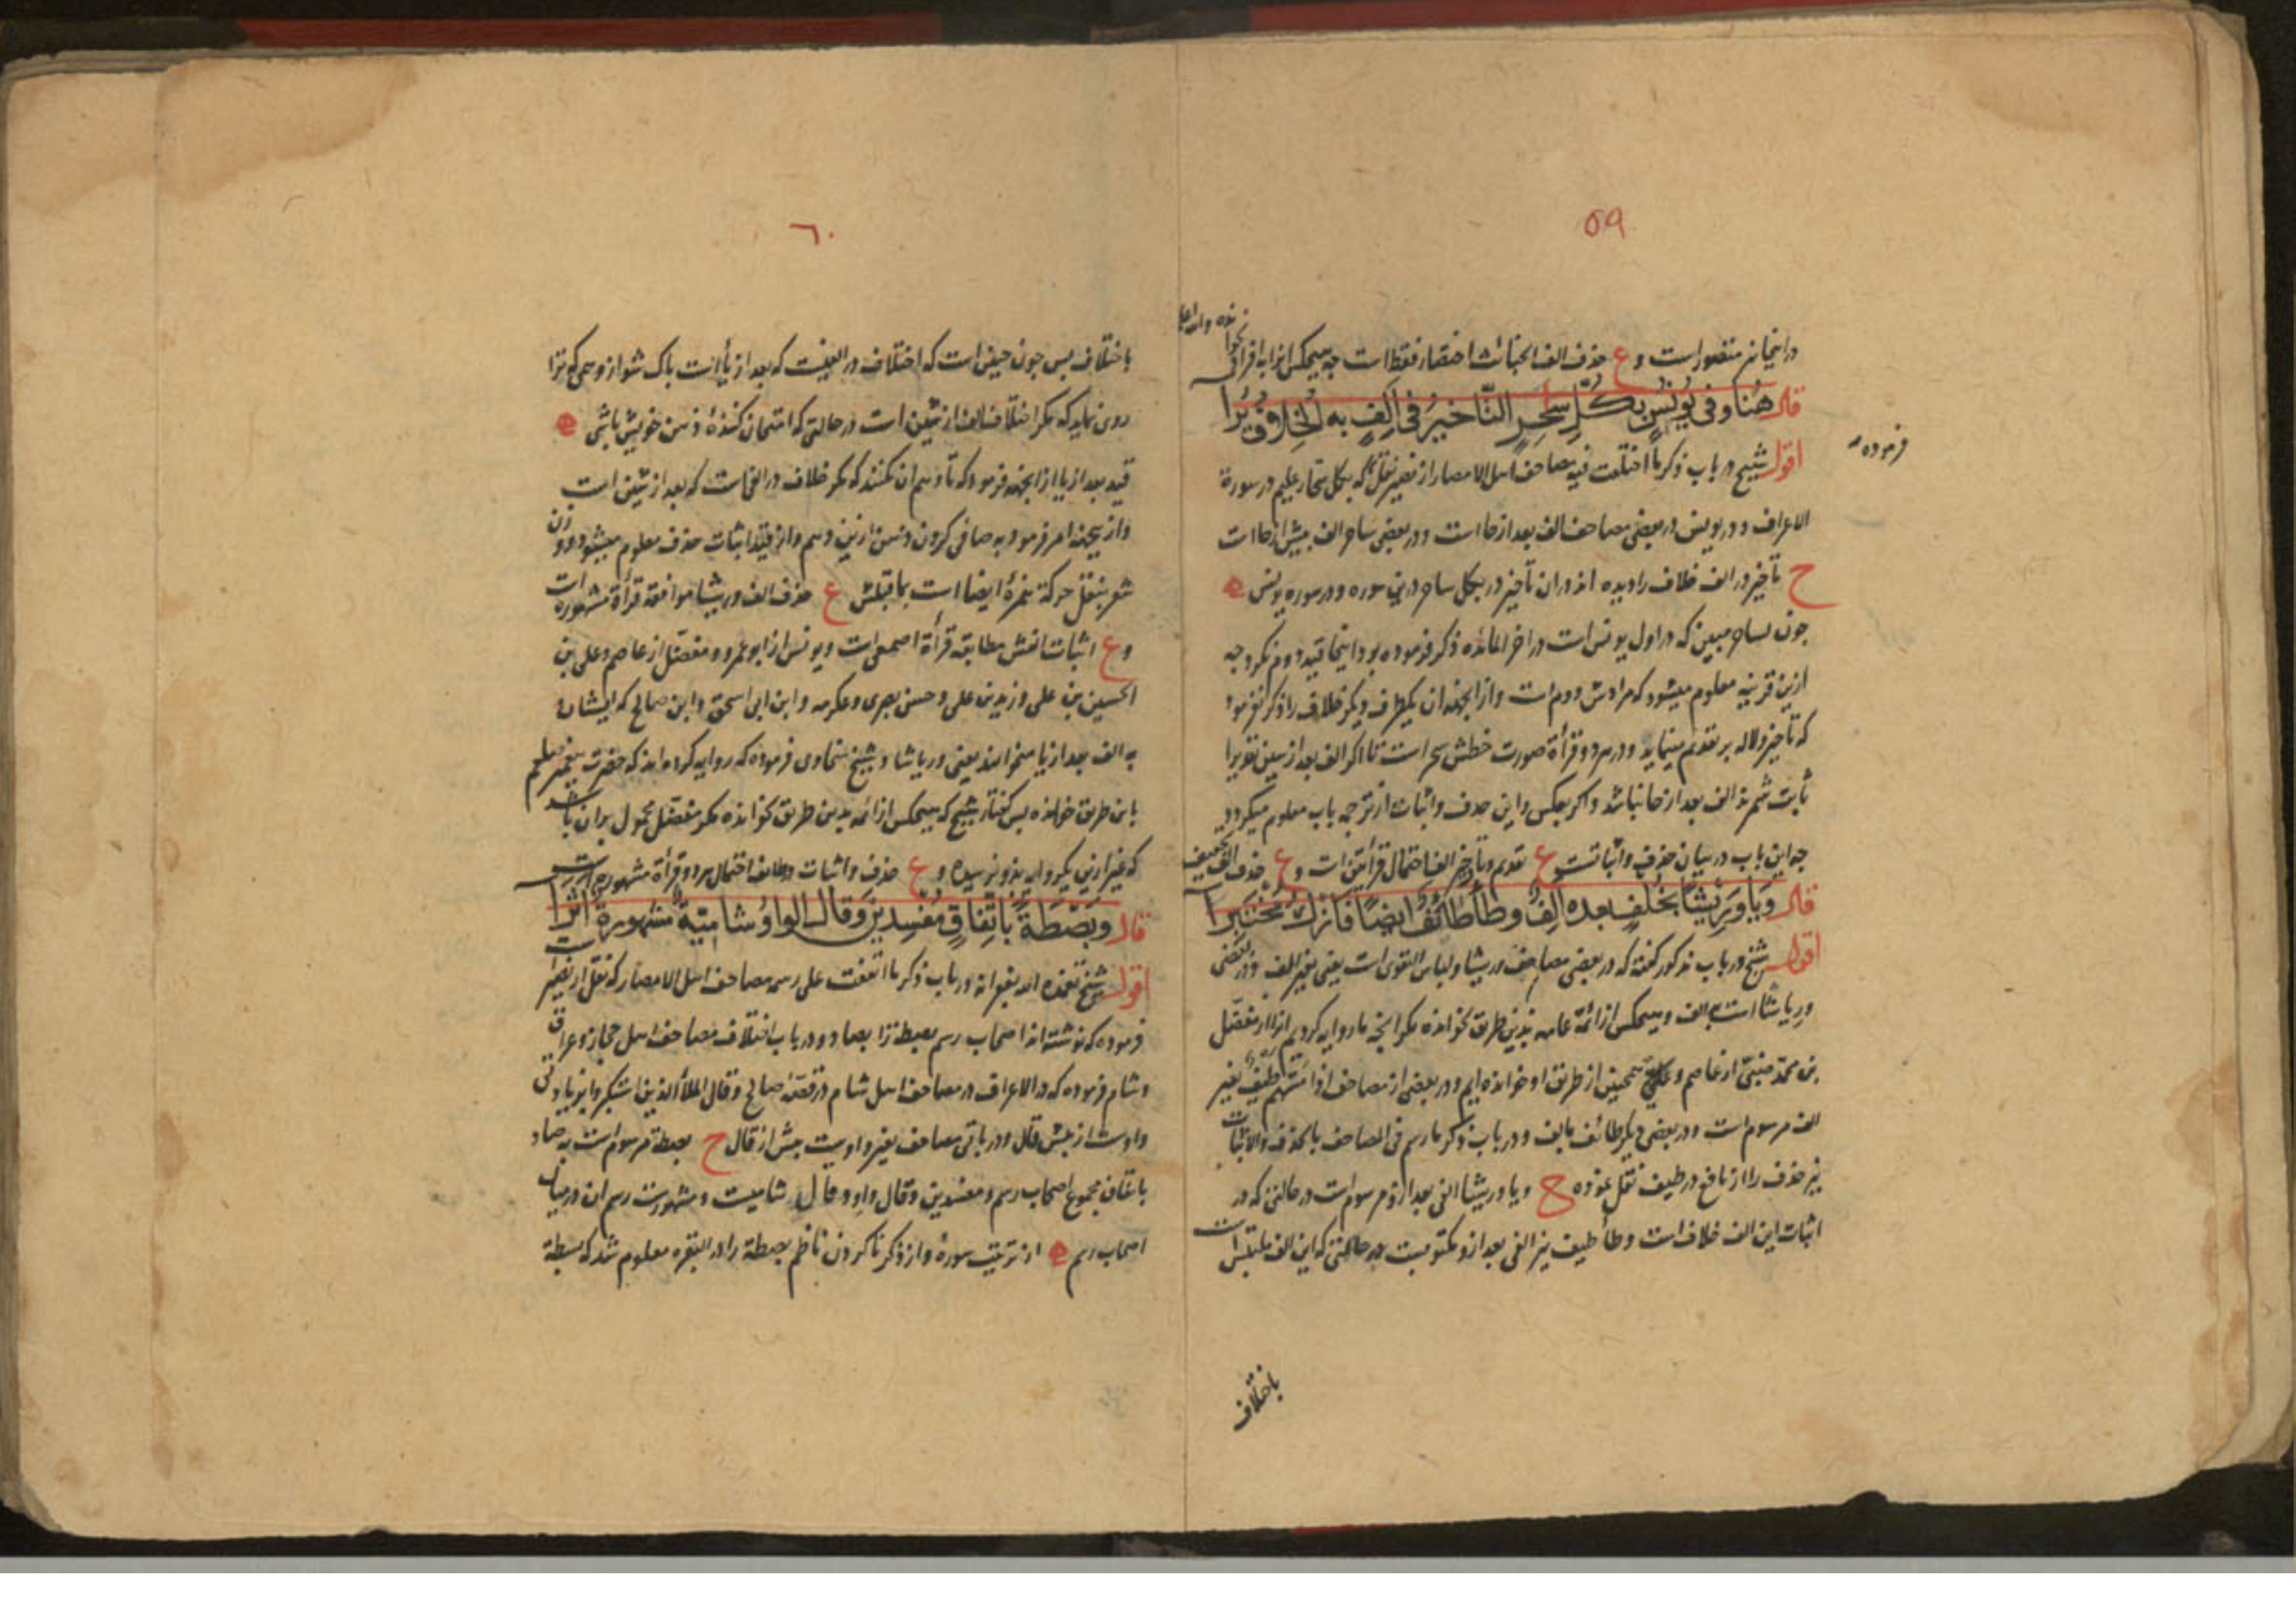 ۵۹
در اینجا نیز متصور است و ع حذف الف الخبائث اختصار فقط است چه هیچکس انرا به افراد نخوانده والله اعلم
قال هُنا وفی یُونُسٍ بِکُلِّ سٰحِرٍ التَّاخیرُ فی اَلِفٍ بهِ الخِلافُ یُرا
اقول شیخ در باب ذکر ما اختلفت فیه مصاحف اهل الامصار از نصیر نقل فرموده که بکل سحار علیم در سورة
الاعراف و در یونس در بعضی مصاحف الف بعد از حا است و در بعضی ساحر الف پیش از حا است
ح تأخیر در الف خلاف را دیده اند در ان تأخیر در بکل ساحر درین سوره و در سوره یونس ه
چون لساحر مبین که در اول یونس است در اخر المائده ذکر فرموده بود اینجا قید دوم نکرد چه
ازین قرینه معلوم میشود که مرادش دوم است و از انجهه ان یکطرف دیگر خلاف را ذکر نفرمود
که تأخیر دلاله بر تقدیم مینماید و در هر دو قرأة صورت خطش سحر است تا اگر الف بعد از سین تقدیرا
ثابت شمرند الف بعد از حا نباشد و اگر بعکس و این حذف و اثبات از ترجمه باب معلوم میگردد
چه این باب در بیان حذف و اثباتست ع تقدیم و تأخیر الف احتمال قرأتین است و ع حذف الف تخفیف است
قال وَیا وَرِیشًا بِخُلْفٍ بعدهُ اَلِفٌ وطا طٰئِفٌ ایضًا فَازكُ مُختبِرا
اقول شیخ در باب مذکور گفته که در بعضی مصاحف وریشا ولباس التقوی است یعنی بغیر الف و در بعضی
وریاشا است بالف و هیچکس از ائمه عامه بدین طریق نخوانده مگر انچه ما روایه کردیم انرا از مفضل
بن محمد ضبی از عاصم و همچنین از طریق او خوانده ایم و در بعضی از مصاحف اذا مسّهم طیف بغیر
الف مرسوم است و در بعضی دیگر طائف بالف و در باب ذکر ما رسم فی المصاحف بالحذف والاثبات
نیز حذف را از نافع در طیف نقل نموده ح و یا وریشا الفی بعد ازو مرسوم است در حالتی که در
اثبات این الف خلاف است و طا طیف نیز الفی بعد ازو مکتوبست در حالتی که این الف ملتبس است
باختلاف
٦٠
باختلاف پس چون چنین است که اختلاف در الفیست که بعد از یا است پاک شو از وهمی که ترا
روی نماید که مکر اختلاف الف از شین است در حالتی که امتحان کننده ذهن خویش باشی ه
قید بعد از یا از انجهه فرمود که تا وهم ان نکنند که مکر خلاف در الفیست که بعد از شین است
و از یجهه امر فرمود به صافی کردن ذهن ازین وهم و از قید اثبات حذف معلوم میشود و وزن
شعر بنقل حرکة همزهٔ ایضا است بماقبلش ع حذف الف وریشا موافقه قرأة مشهوره است
و ع اثبات الفش مطابقه قرأة اصمعی است و یونس از ابو عمرو و مفضل از عاصم و علی بن
الحسین بن علی و زید بن علی و حسن بصری و عکرمه و ابن ابی اسحق و ابن صالح که ایشان
به الف بعد از یا میخوانند یعنی وریاشا و شیخ سخاوی فرموده که روایه کرده اند که حضرت پیغمبر صلعم
باین طریق خوانده پس گفتار شیخ که هیچکس از ائمه بدین طریق نخوانده مکر مفضل محمول بران باشد
که غیر ازین یکی روایه بدو نرسیده و ع حذف و اثبات در طائف احتمال هر دو قرأة مشهوره است
قال وبَصْطَةً بِاتِّفاقٍ مُفسِدین وَقال الواوُ شامِیَّةٌ مَشهورةً اَثَرا
اقول شیخ تغمده الله بغفرانه در باب ذکر ما اتفقت علی رسمه مصاحف اهل الامصار که نقل از نصیر است
فرموده که نوشته اند اصحاب رسم بصطة را بصاد و در باب اختلاف مصاحف اهل حجاز و عراق
و شام فرموده که در الاعراف در مصاحف اهل شام در قصه صالح وقال الملأ الذین استکبروا بزیادتی
واوست از پیش قال و در باقی مصاحف بغیر واویست پیش از قال ح بصطة مرسوم است به صاد
باتفاق مجموع اصحاب رسم و مفسدین وقال واو وقال شامیست و مشهورست رسم ان در میان
اصحاب رسم ه از ترتیب سوره و از ذکر ناکردن ناظم بصطة را در البقره معلوم شد که بسطة